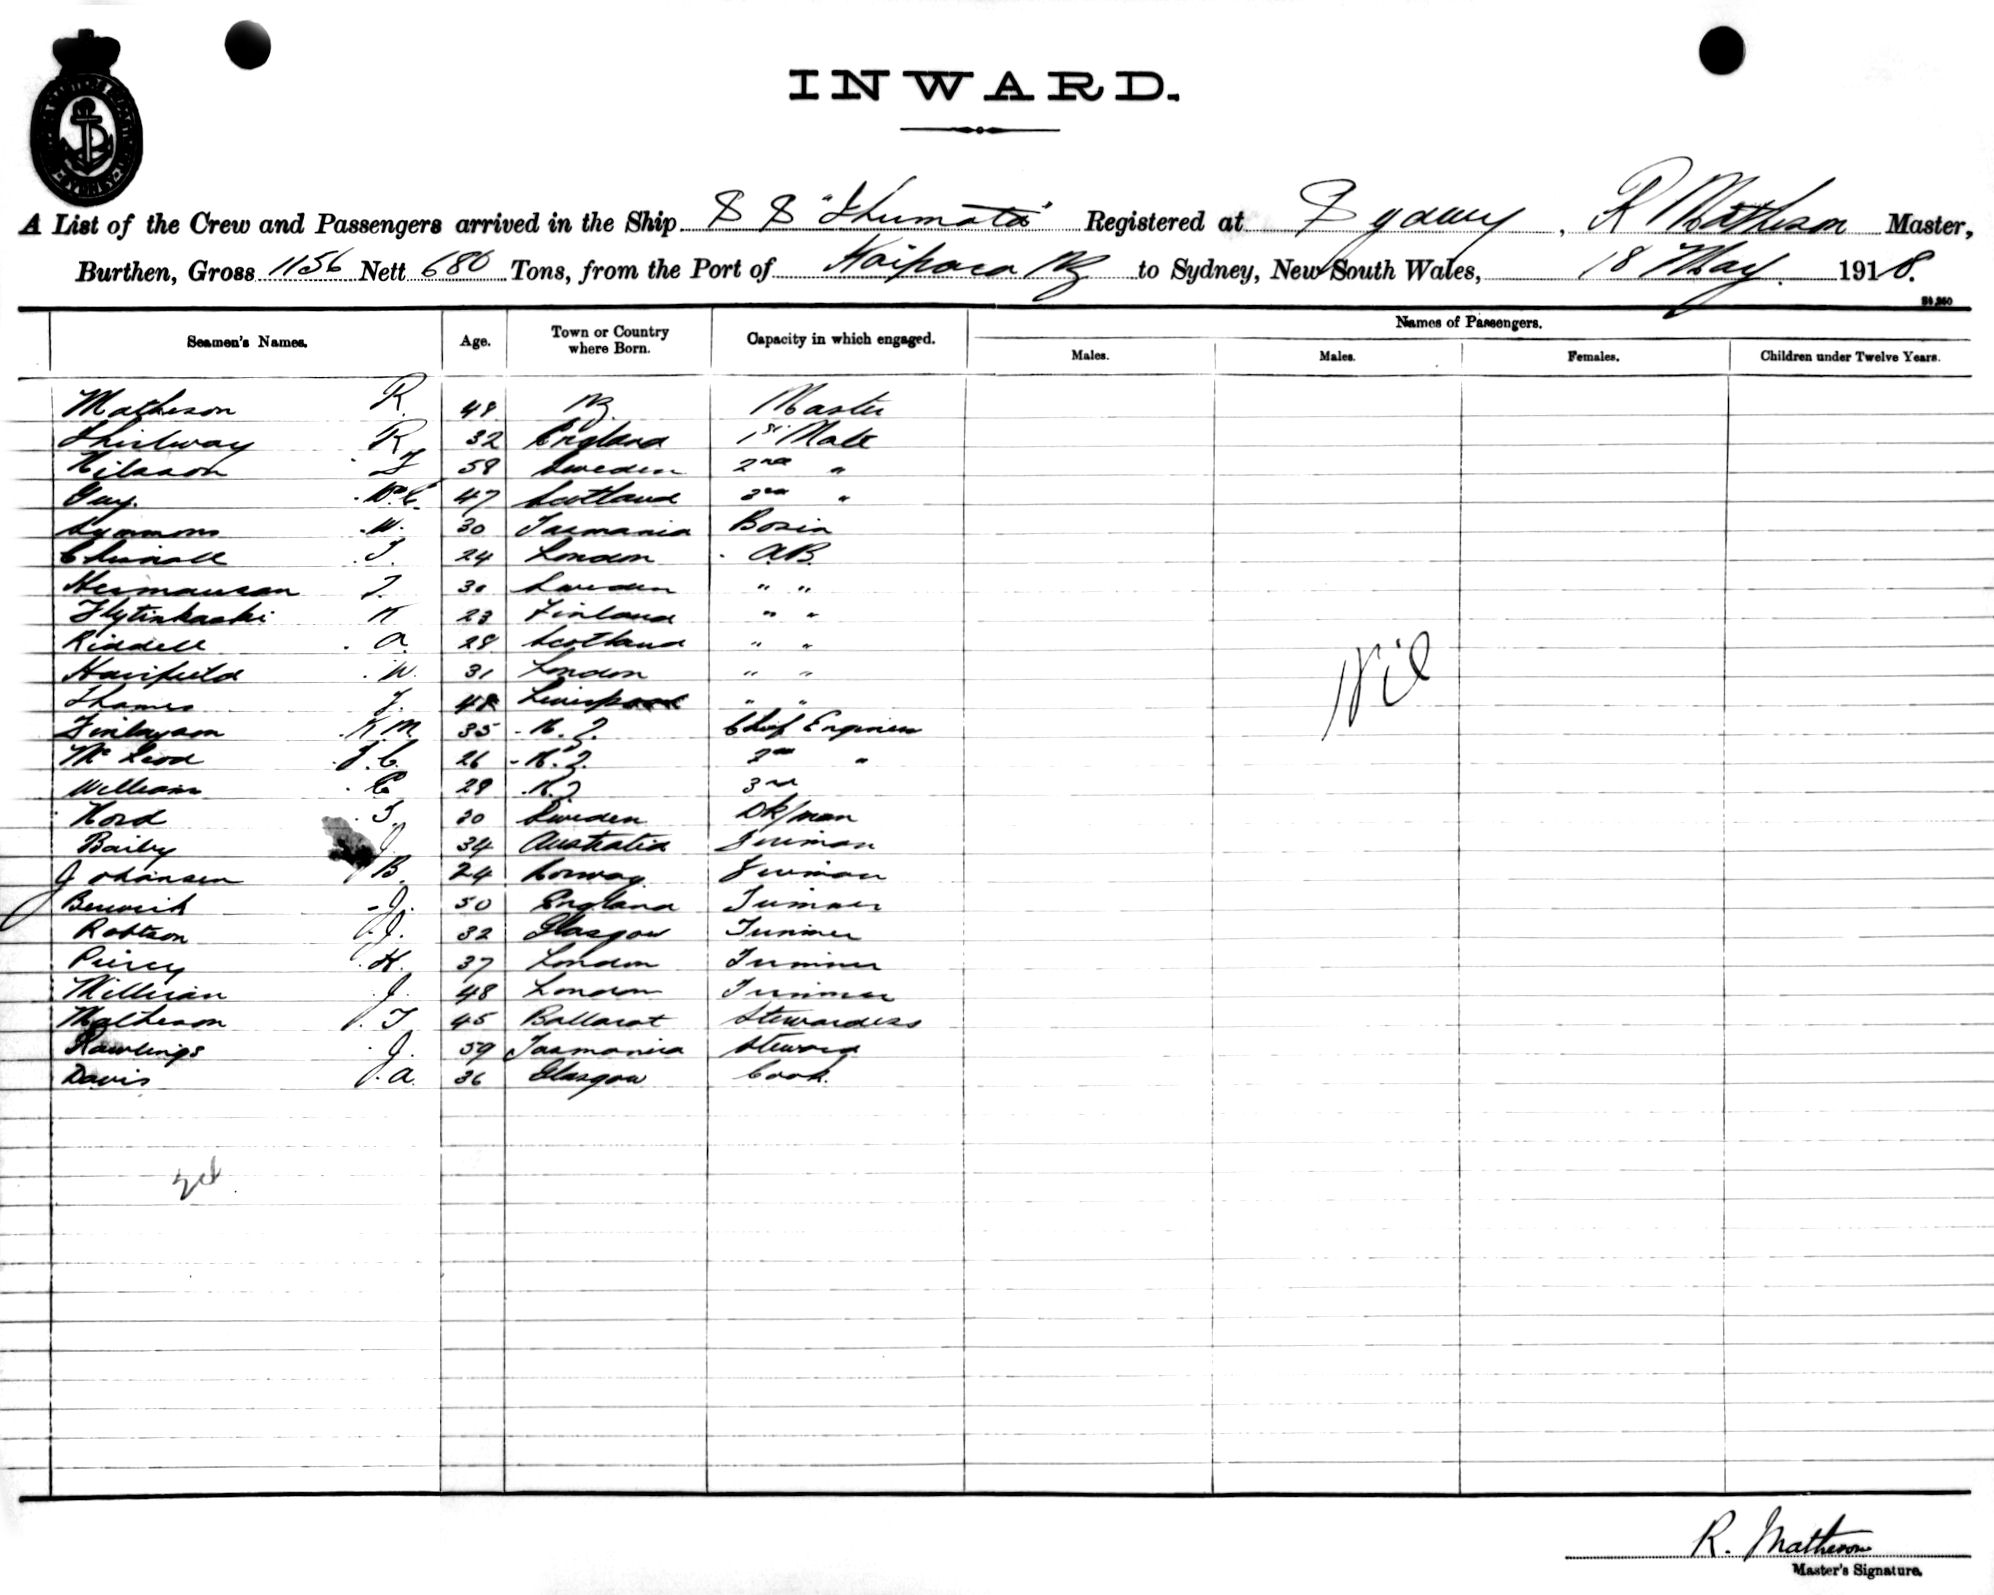 INWARD.
A List of the Crew and Passengers arrived in the Ship S S Registered at Sydney, R Matheson Master,
Burthen, Gross 1156 Nett 686 Tons, from the Port of Kaipara NZ to Sydney, New South Wales, 18 May 1918.
Names of Passengers.
Seamen's Names. Age. Town or Country where Born. Capacity in which engaged. Males. Males. Females. Children under Twelve Years.
Matheson R. 48 NZ. Master
R 32 England 1st Mate
Nilsson 59 Sweden 2nd "
Guy. Wm C. 47 Scotland 3rd "
Symmons W. 30 Tasmania Bosin
T. 24 London A.B.
Hermansan 30 Sweden " "
K 23 Finland " "
Riddell A. 28 Scotland " "
Harifield W. 31 London " "
48 Liverpool " "
Finlayson K.M. 35 N.Z. Chief Engineer
Mc Leod J.C. 26 N.Z. 2nd "
William C 29 N.Z 3rd
Nord 30 Sweden Dk/man
Baily J. 34 Australia Fireman
Johansen B. 24 Norway Fireman
Berwick J. 50 England Trimmer
Robtson J. 32 Glasgow Trimmer
Piercy H. 37 London Trimmer
Millican J. 48 London Trimmer
Matheson T 45 Ballarat Stewardess
Rawlings J. 59 Tasmania Steward
Davis A. 36 Glasgow Cook.
Nil
R. Matheson
Master's Signature.